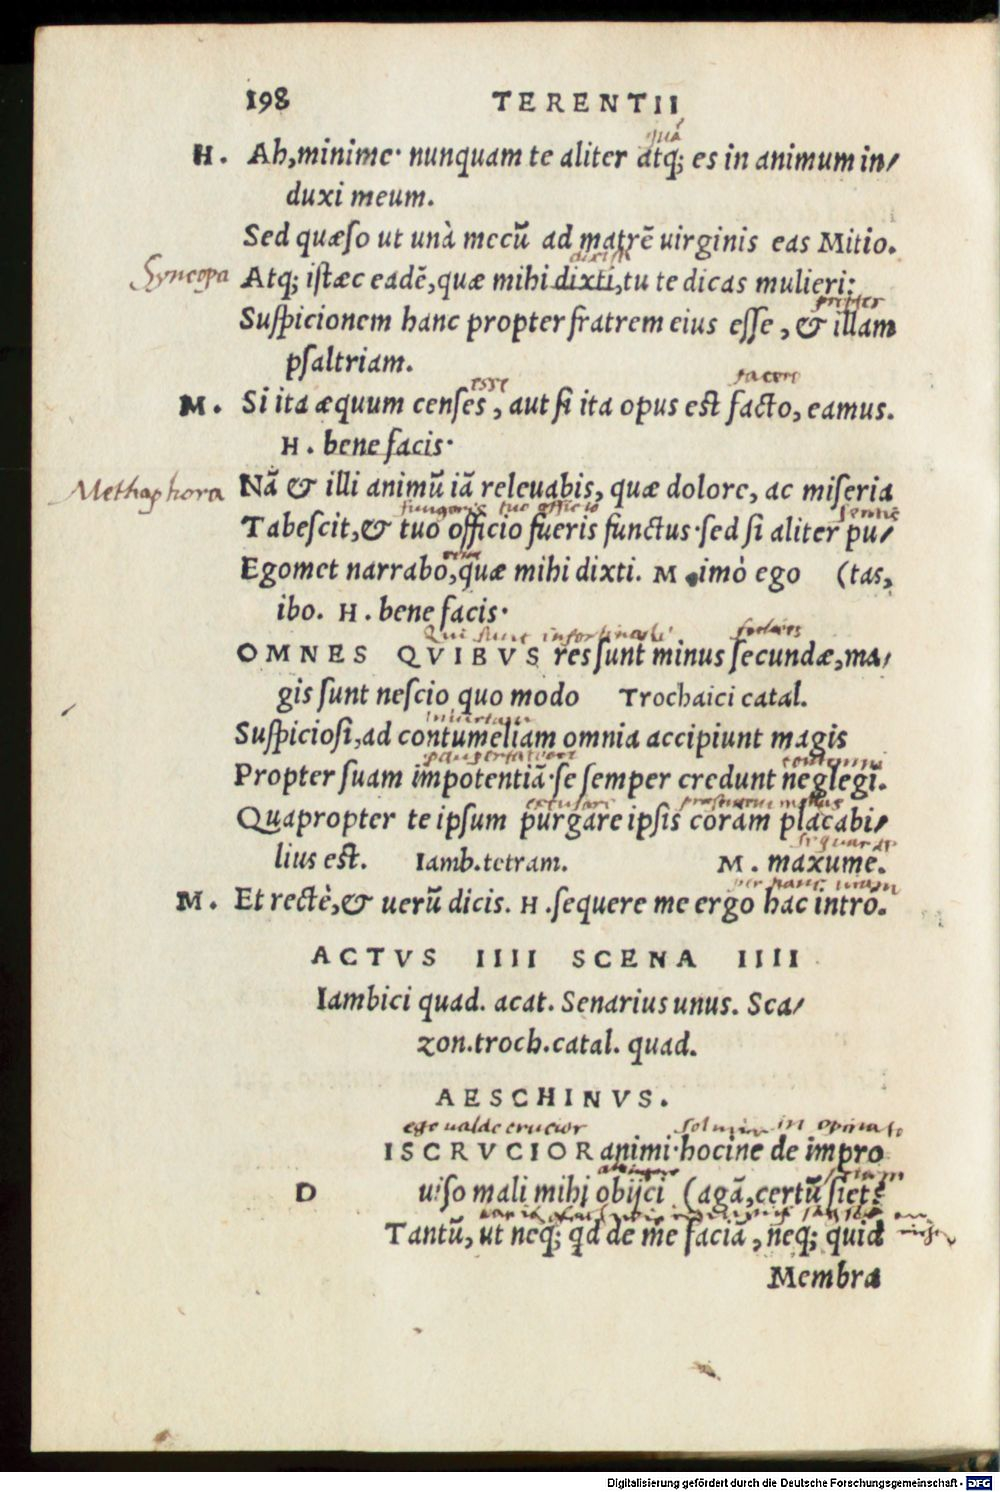 198 TERENTII
quã
H. Ah,minime· nunquam te aliter atq; es in animum in/
duxi meum.
Sed quæſo ut unà mecũ ad matrẽ uirginis eas Mitio.
dixisti
Syncopa Atq; iſtæc eadẽ,quæ mihi dixti,tu te dicas mulieri:
propter
Suſpicionem hanc propter fratrem eius eſſe, & illam
pſaltriam.
esse facere
M. Si ita æquum cenſes, aut ſi ita opus est facto, eamus.
H. bene facis·
Methaphora Nã & illi animũ iã releuabis, quæ dolore, ac miſeria
fungeris tuo officio sentis
Tabeſcit,& tuo officio fueris functus·ſed ſi aliter pu/
Egomet narrabo,quæ mihi dixti. M. imò ego (tas,
ibo. H. bene facis·
Qui sunt infortunati
OMNES QVIBVS res ſunt minus ſecundæ,ma/
gis ſunt neſcio quo modo Trochaici catal.
iniuriam
Suſpicioſi,ad contumeliam omnia accipiunt magis
contemni
Propter ſuam impotentiã·ſe ſemper credunt neglegi.
excusare
Quapropter te ipſum purgare ipſis coram placabi/
lius est. Iamb.tetram. M. maxume.
per hanc uiam
M. Et rectè,& uerũ dicis. H .ſequere me ergo hac intro.
ACTVS IIII SCENA IIII
Iambici quad. acat. Senarius unus. Sca/
zon.troch.catal. quad.
AESCHINVS.
ego ualde crucior in opinato
DISCRVCIOR animi·hocine de impro
uiſo mali mihi obijci (agã,certũ ſiet?
Tantũ, ut neq; qd de me faciã, neq; quid
Membra
Digitalisierung gefördert durch die Deutsche Forschungsgemeinschaft - DFG